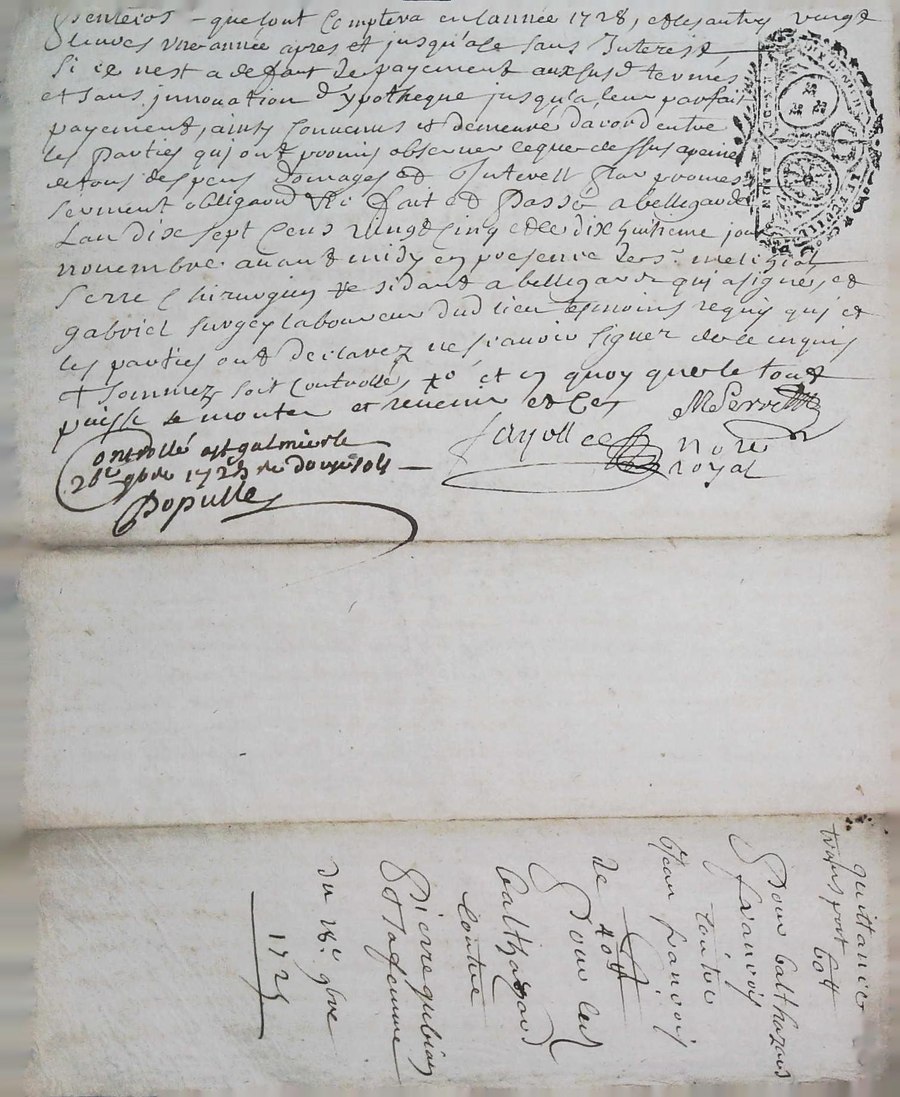 que soit Comptera en lannée 1728, et les autres vingt
Livres une année apres et jusqu'a se sans Interest
Si ce nest a defaut de payement aux susd termes
et sans jnnovation d'ypotheque jusqu'a leur parfait
payement, ainsy Convenus et demeuré dacord entre
les Parties qui ont promis observer ceque dessus apeine
de tous despens domages et Interest Par promesse
serment obligaons Fait et Passé a bellegarde
Lan dix sept Cens vingt Cinq et le dix huitieme jour
novembre avant midy en presence de sr.
Serre Chirurgien residant a bellegarde qui a signé, et
gabriel laboureur dud lieu tesmoins requis qui et
les parties ont declarez ne scavoir signer de ce enquis
et Sommez soit Controllé, et en quoy que le tout
puisse se monter et revenir
MSerre
fayolle
nore
royal
Controllé a st galmier le
28e 9bre 1725 re douze sols
Populle
quittance
transport 60ll
Pour balthazard
françois
Contre
Jean françois
de 40ll
Pour led
balthazard
Contre
Pierre gubian
Et sa femme
du 18e 9bre
1725